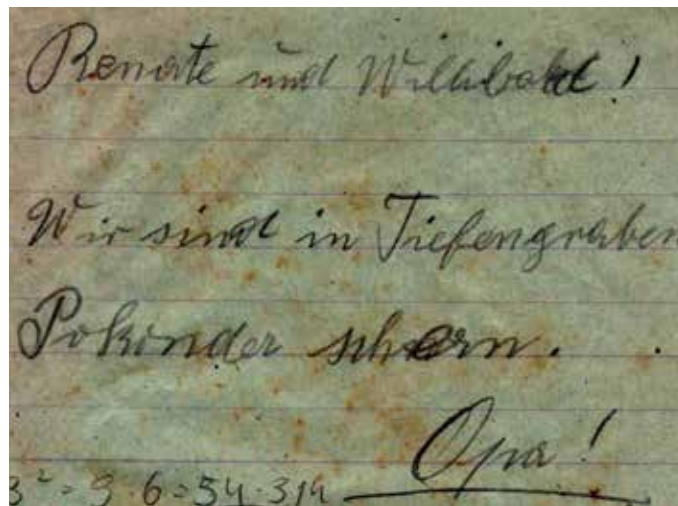 Renate und Willibald!
Wir sind in Tiefengraben
Pokonder schern.
Opa!
3² = 9 · 6 = 54 · 314